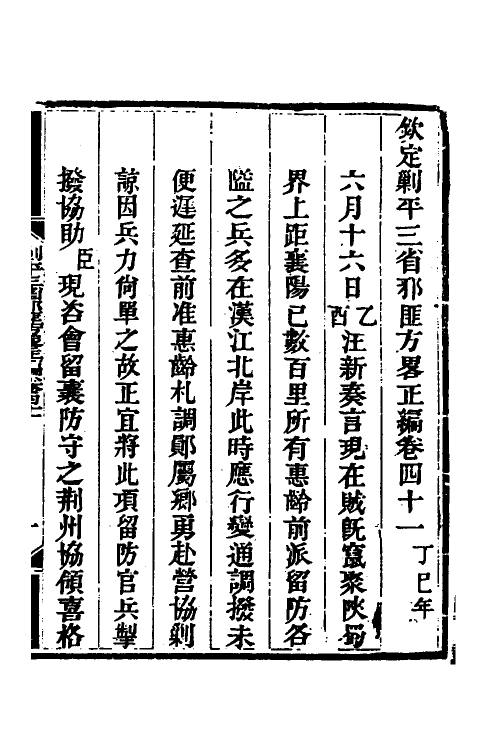 欽定剿平三省邪匪方畧正編卷四十一 丁巳年
六月十六日乙酉汪新奏言現在賊旣竄聚陝蜀
界上距襄陽已數百里所有惠齡前派留防各
隘之兵多在漢江北岸此時應行變通調撥未
便遲延查前准惠齡札調鄖屬鄉勇赴營協剿
諒因兵力尙單之故正宜將此項留防官兵掣
撥協助臣現咨會留襄防守之荆州協領喜格